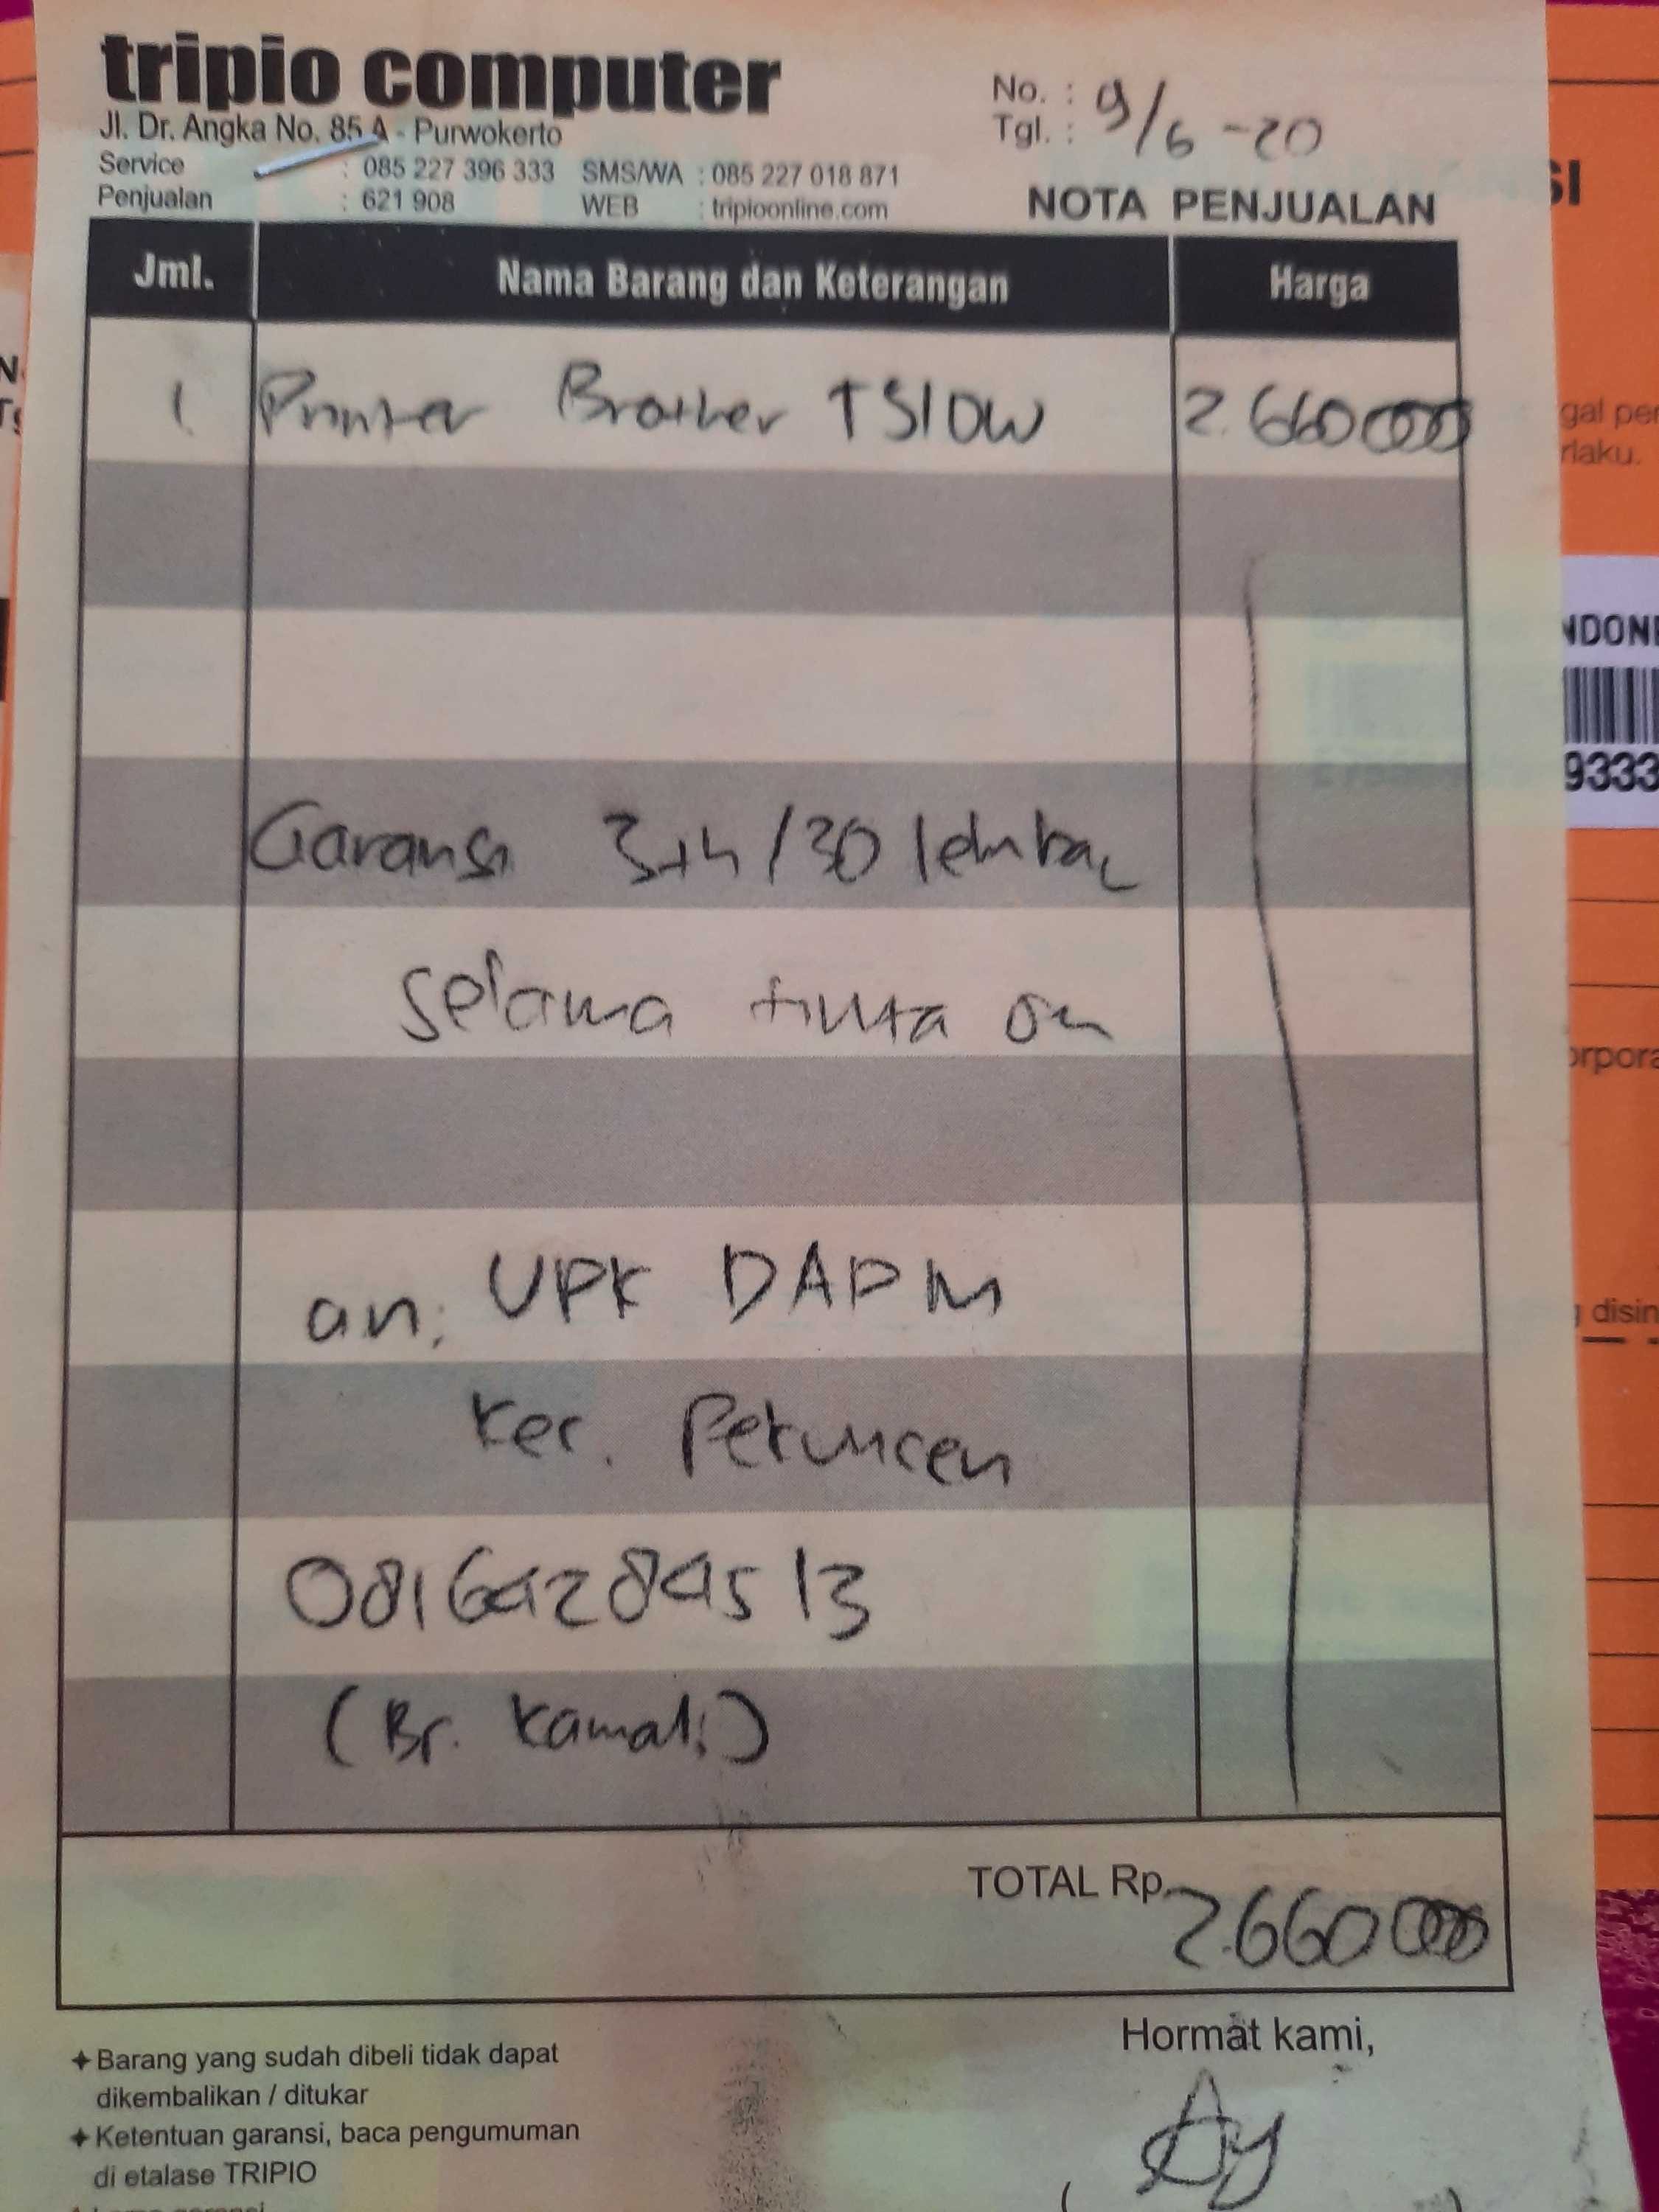 tripio computer
Jl. Dr. Angka No. 85 A - Purwokerto
Service : 085 227 396 333 SMS/WA : 085 227 018 871
Penjualan : 621 908 WEB : tripioonline.com
No. :
Tgl. : 9/6-20
NOTA PENJUALAN
Jml. Nama Barang dan Keterangan Harga
1 Printer Brother T510W 2.660000
Garansi 3th/30 lembar
selama tinta on
an: UPK DAPM
Kec. Pekuncen
08164284513
(Br. Kamal:)
TOTAL Rp. 2.660000
Hormat kami,
✦ Barang yang sudah dibeli tidak dapat
dikembalikan / ditukar
✦ Ketentuan garansi, baca pengumuman
di etalase TRIPIO
SI
gal per
rlaku.
NDONE
9333
orpora
disin